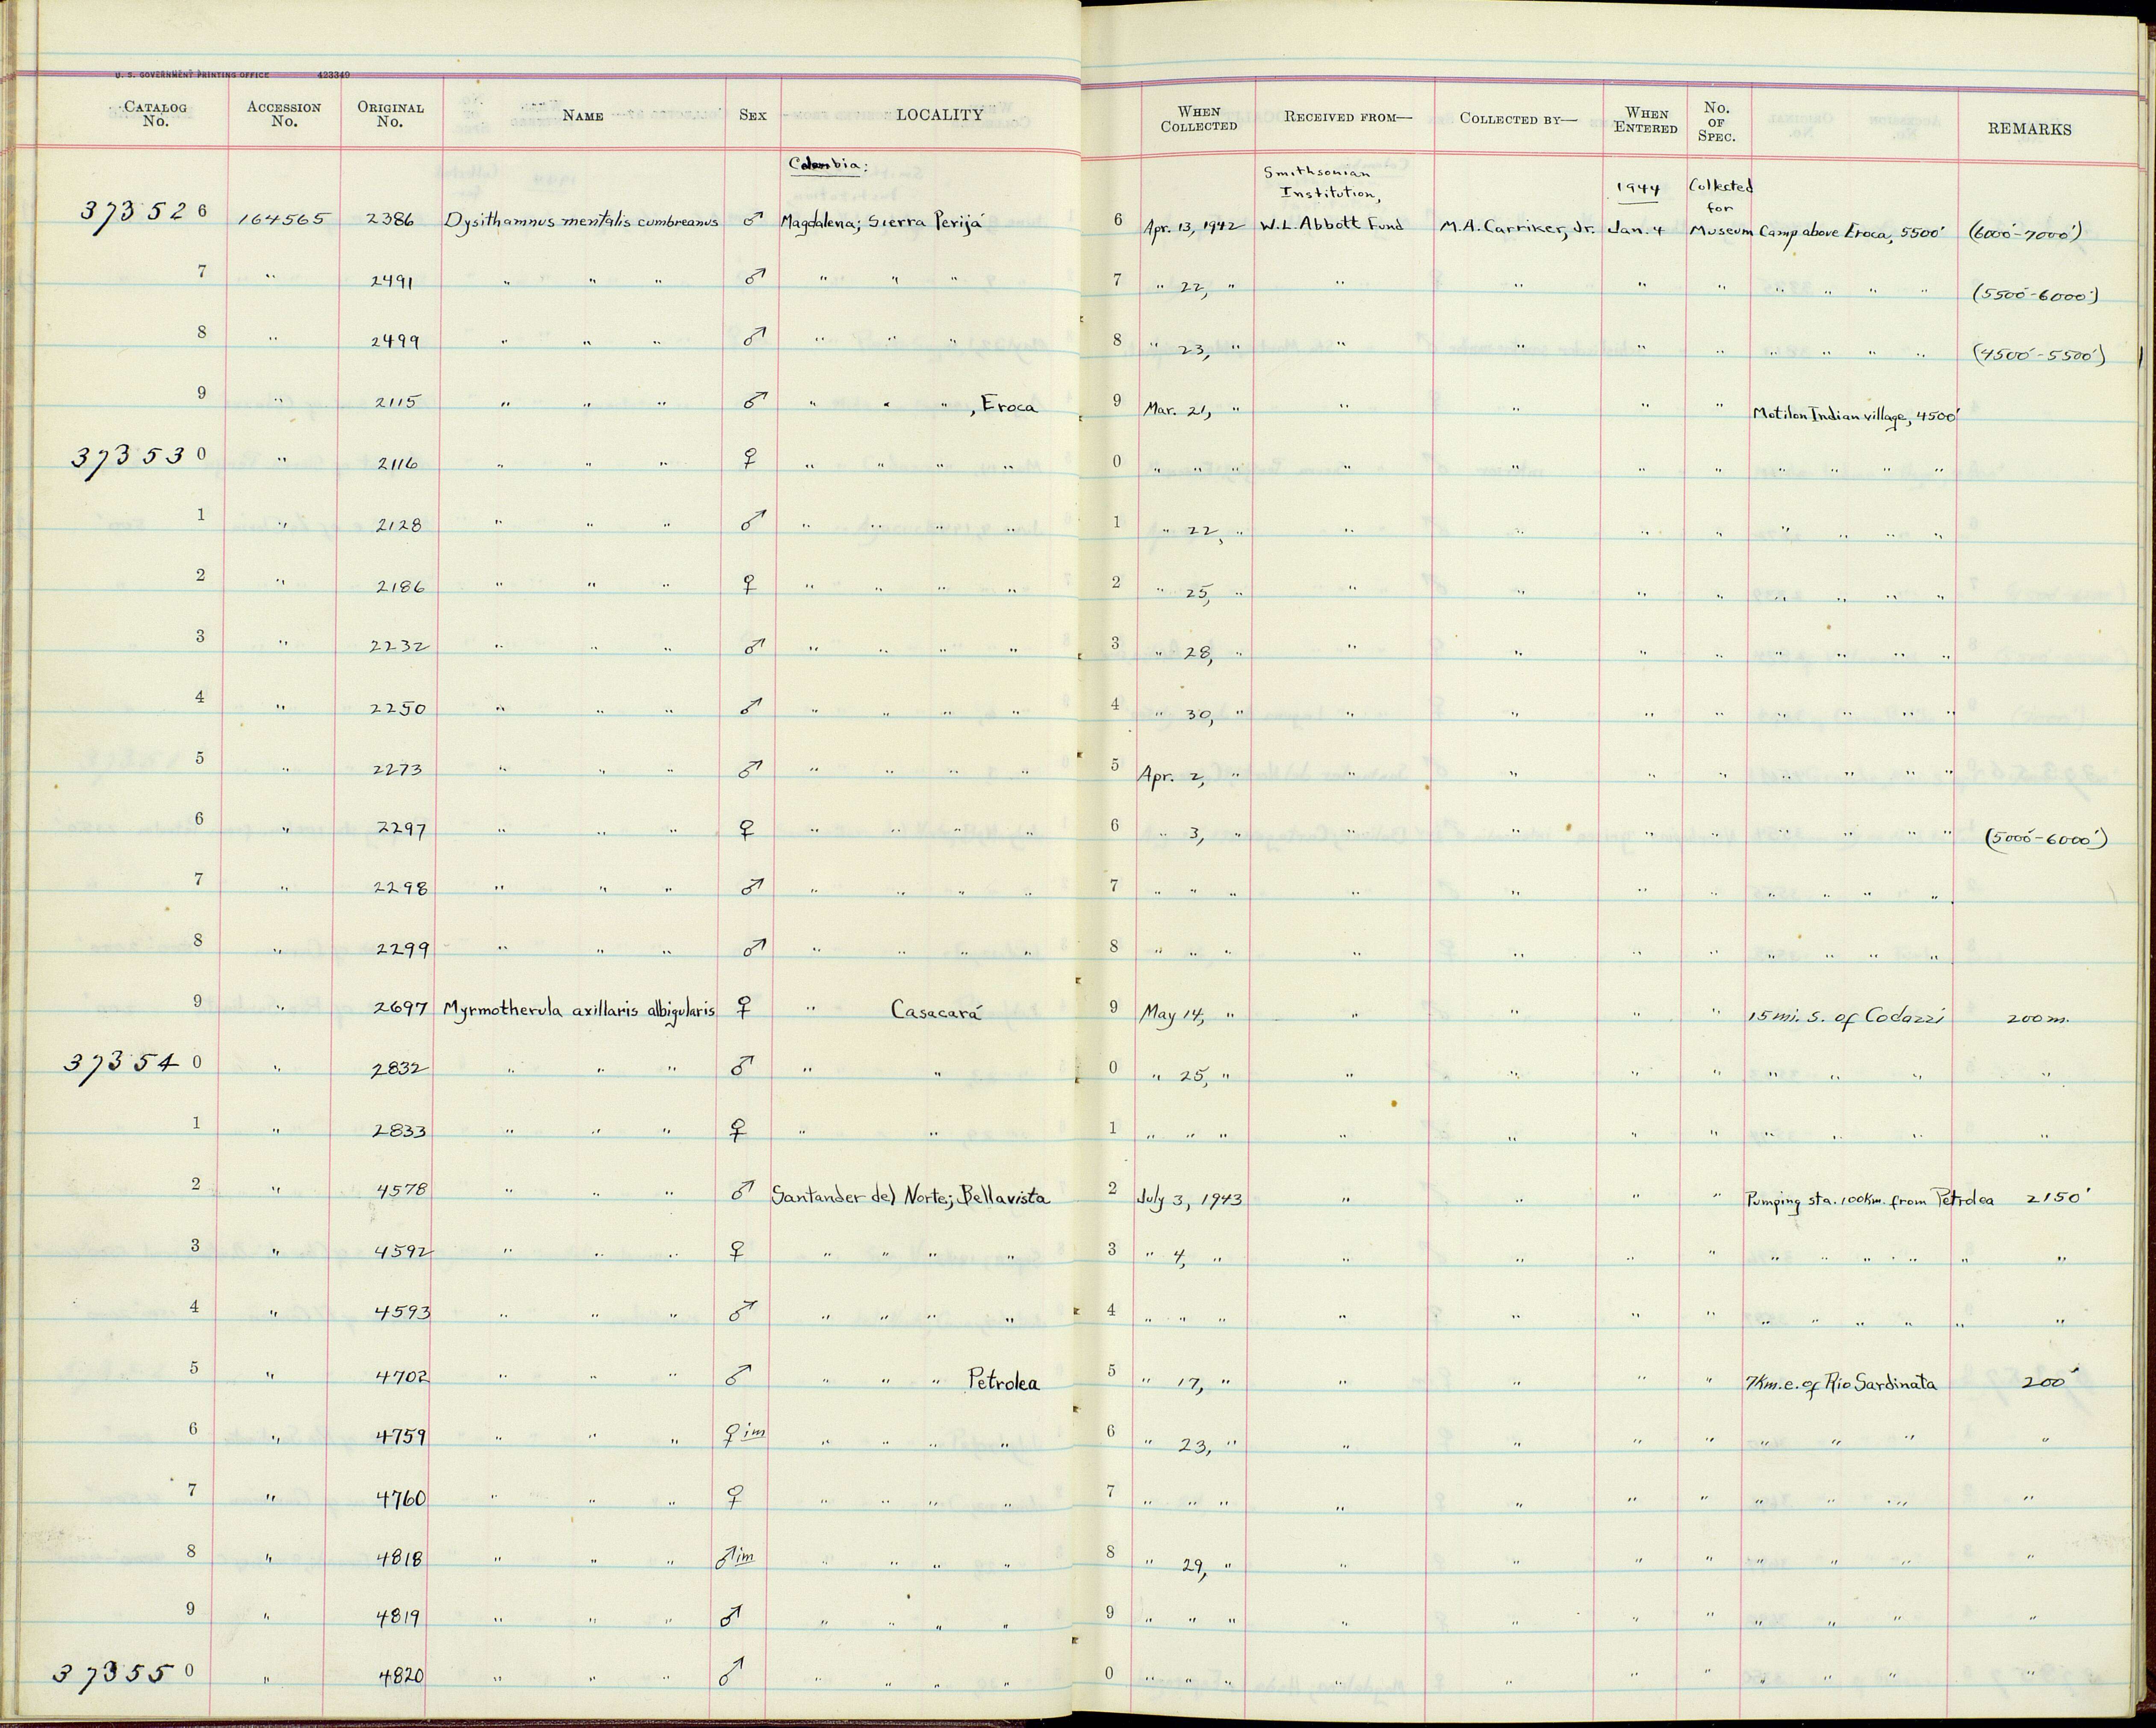 U. S. GOVERNMENT PRINTING OFFICE 423349
CATALOG No. ACCESSION No. ORIGINAL No. NAME SEX LOCALITY WHEN COLLECTED RECEIVED FROM— COLLECTED BY— WHEN ENTERED No. OF SPEC. REMARKS
Colombia: Smithsonian Institution, 1944 Collected for
373526 164565 2386 Dysithamnus mentalis cumbreanus ♂ Magdalena; Sierra Perijá 6 Apr. 13, 1942 W.L. Abbott Fund M.A. Carriker, Jr. Jan. 4 Museum Camp above Eroca, 5500' (6000'-7000')
7 " 2491 " " " ♂ " " " 7 " 22, " " " " " " " " " (5500'-6000')
8 " 2499 " " " ♂ " " " 8 " 23, " " " " " " " " " (4500'-5500')
9 " 2115 " " " ♂ " " ", Eroca 9 Mar. 21, " " " " " Motilon Indian village, 4500'
373530 " 2116 " " " ♀ " " " " 0 " " " " " " " " " " "
1 " 2128 " " " ♂ " " " " 1 " 22, " " " " " " " " "
2 " 2186 " " " ♀ " " " " 2 " 25, " " " " " " " " "
3 " 2232 " " " ♂ " " " " 3 " 28, " " " " " " " " "
4 " 2250 " " " ♂ " " " " 4 " 30, " " " " " " " " "
5 " 2273 " " " ♂ " " " " 5 Apr. 2, " " " " " " " " "
6 " 2297 " " " ♀ " " " " 6 " 3, " " " " " " " " " (5000'-6000')
7 " 2298 " " " ♂ " " " " 7 " " " " " " " " " " "
8 " 2299 " " " ♂ " " " " 8 " " " " " " " " " " "
9 " 2697 Myrmotherula axillaris albigularis ♀ " Casacará 9 May 14, " " " " " 15 mi. S. of Codazzi 200 m.
373540 " 2832 " " " ♂ " " 0 " 25, " " " " " " " " "
1 " 2833 " " " ♀ " " 1 " " " " " " " " " " "
2 " 4578 " " " ♂ Santander del Norte; Bellavista 2 July 3, 1943 " " " " Pumping sta. 100km. from Petrolea 2150'
3 " 4592 " " " ♀ " " " " 3 " 4, " " " " " " " " " " "
4 " 4593 " " " ♂ " " " " 4 " " " " " " " " " " " " "
5 " 4702 " " " ♂ " " " Petrolea 5 " 17, " " " " " 7Km. e. of Rio Sardinata 200'
6 " 4759 " " " ♀ im " " " " 6 " 23, " " " " " " " " "
7 " 4760 " " " ♀ " " " " 7 " " " " " " " " " " "
8 " 4818 " " " ♂ im " " " " 8 " 29, " " " " " " " " "
9 " 4819 " " " ♂ " " " " 9 " " " " " " " " " " "
373550 " 4820 " " " ♂ " " " " 0 " " " " " " " " " " "